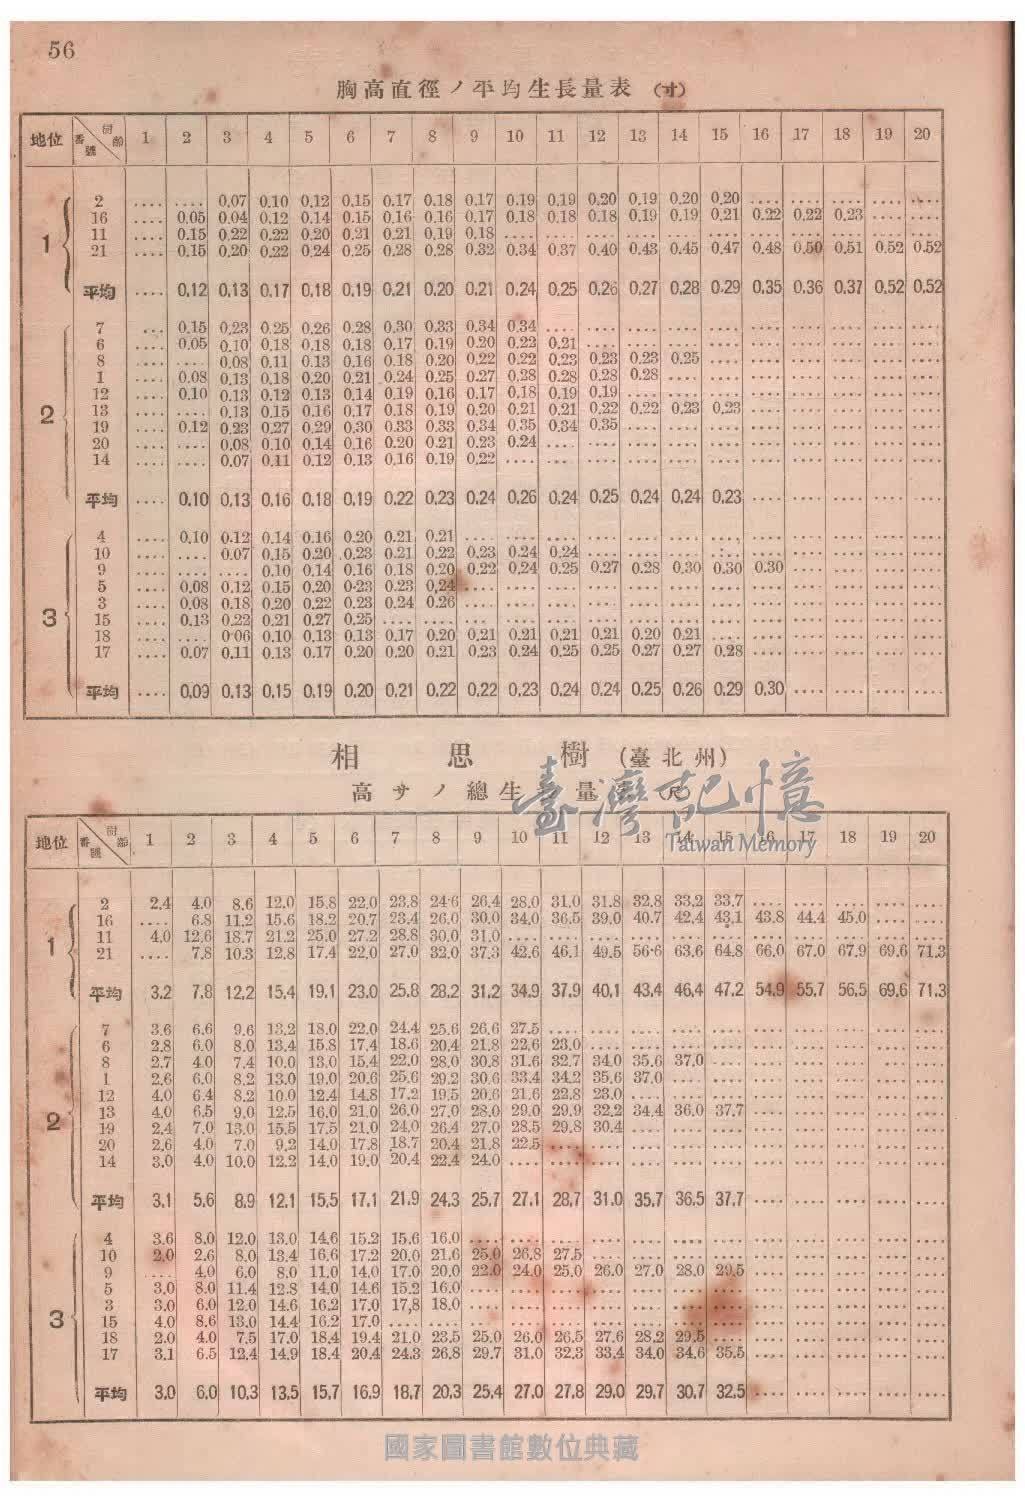 56
胸高直徑ノ平均生長量表 (寸)
地位 番號 樹齡 1 2 3 4 5 6 7 8 9 10 11 12 13 14 15 16 17 18 19 20
1
2 .... .... 0.07 0.10 0.12 0.15 0.17 0.18 0.17 0.19 0.19 0.20 0.19 0.20 0.20 .... .... .... .... ....
16 .... 0.05 0.04 0.12 0.14 0.15 0.16 0.16 0.17 0.18 0.18 0.18 0.19 0.19 0.21 0.22 0.22 0.23 .... ....
11 .... 0.15 0.22 0.22 0.20 0.21 0.21 0.19 0.18 .... .... .... .... .... .... .... .... .... .... ....
21 .... 0.15 0.20 0.22 0.24 0.25 0.28 0.28 0.32 0.34 0.37 0.40 0.43 0.45 0.47 0.48 0.50 0.51 0.52 0.52
平均 .... 0.12 0.13 0.17 0.18 0.19 0.21 0.20 0.21 0.24 0.25 0.26 0.27 0.28 0.29 0.35 0.36 0.37 0.52 0.52
2
7 ... 0.15 0.23 0.25 0.26 0.28 0.30 0.33 0.34 0.34 .... .... .... .... .... .... .... .... .... ....
6 .... 0.05 0.10 0.18 0.18 0.18 0.17 0.19 0.20 0.22 0.21 .... .... .... .... .... .... .... .... ....
8 .... .... 0.08 0.11 0.13 0.16 0.18 0.20 0.22 0.22 0.23 0.23 0.23 0.25 .... .... .... .... .... ....
1 .... 0.08 0.13 0.18 0.20 0.21 0.24 0.25 0.27 0.28 0.28 0.28 0.28 .... .... .... .... .... .... ....
12 .... 0.10 0.13 0.12 0.13 0.14 0.19 0.16 0.17 0.18 0.19 0.19 .... .... .... .... .... .... .... ....
13 .... .... 0.13 0.15 0.16 0.17 0.18 0.19 0.20 0.21 0.21 0.22 0.22 0.23 0.23 .... .... .... .... ....
19 .... 0.12 0.23 0.27 0.29 0.30 0.33 0.33 0.34 0.35 0.34 0.35 .... .... .... .... .... .... .... ....
20 .... .... 0.08 0.10 0.14 0.16 0.20 0.21 0.23 0.24 .... .... .... .... .... .... .... .... .... ....
14 .... .... 0.07 0.11 0.12 0.13 0.16 0.19 0.22 .... .... .... .... .... .... .... .... .... .... ....
平均 .... 0.10 0.13 0.16 0.18 0.19 0.22 0.23 0.24 0.26 0.24 0.25 0.24 0.24 0.23 .... .... .... .... ....
3
4 .... 0.10 0.12 0.14 0.16 0.20 0.21 0.21 .... .... .... .... .... .... .... .... .... .... .... ....
10 .... .... 0.07 0.15 0.20 0.23 0.21 0.22 0.23 0.24 0.24 .... .... .... .... .... .... .... .... ....
9 .... .... .... 0.10 0.14 0.16 0.18 0.20 0.22 0.24 0.25 0.27 0.28 0.30 0.30 0.30 .... .... .... ....
5 .... 0.08 0.12 0.15 0.20 0·23 0.23 0.24 .... .... .... .... .... .... .... .... .... .... .... ....
3 .... 0.08 0.18 0.20 0.22 0.23 0.24 0.26 .... .... .... .... .... .... .... .... .... .... .... ....
15 .... 0.13 0.22 0.21 0.27 0.25 .... .... .... .... .... .... .... .... .... .... .... .... .... ....
18 .... .... 0·06 0.10 0.13 0.13 0.17 0.20 0.21 0.21 0.21 0.21 0.20 0.21 .... .... .... .... .... ....
17 .... 0.07 0.11 0.13 0.17 0.20 0.20 0.21 0.23 0.24 0.25 0.25 0.27 0.27 0.28 .... .... .... .... ....
平均 .... 0.09 0.13 0.15 0.19 0.20 0.21 0.22 0.22 0.23 0.24 0.24 0.25 0.26 0.29 0.30 .... .... .... ....
相思樹 (臺北州)
高サノ總生 量 (尺)
臺灣記憶
Taiwan Memory
地位 番號 樹齡 1 2 3 4 5 6 7 8 9 10 11 12 13 14 15 16 17 18 19 20
1
2 2.4 4.0 8.6 12.0 15.8 22.0 23.8 24·6 26.4 28.0 31.0 31.8 32.8 33.2 33.7 .... .... .... .... ....
16 .... 6.8 11.2 15.6 18.2 20.7 23.4 26.0 30.0 34.0 36.5 39.0 40.7 42.4 43.1 43.8 44.4 45.0 .... ....
11 4.0 12.6 18.7 21.2 25.0 27.2 28.8 30.0 31.0 .... .... .... .... .... .... .... .... .... .... ....
21 .... 7.8 10.3 12.8 17.4 22.0 27.0 32.0 37.3 42.6 46.1 49.5 56·6 63.6 64.8 66.0 67.0 67.9 69.6 71.3
平均 3.2 7.8 12.2 15.4 19.1 23.0 25.8 28.2 31.2 34.9 37.9 40.1 43.4 46.4 47.2 54.9 55.7 56.5 69.6 71.3
2
7 3.6 6.6 9.6 13.2 18.0 22.0 24.4 25.6 26.6 27.5 .... .... .... .... .... .... .... .... .... ....
6 2.8 6.0 8.0 13.4 15.8 17.4 18.6 20.4 21.8 22.6 23.0 .... .... .... .... .... .... .... .... ....
8 2.7 4.0 7.4 10.0 13.0 15.4 22.0 28.0 30.8 31.6 32.7 34.0 35.6 37.0 .... .... .... .... .... ....
1 2.6 6.0 8.2 13.0 19.0 20.6 25.6 29.2 30.6 33.4 34.2 35.6 37.0 .... .... .... .... .... .... ....
12 4.0 6.4 8.2 10.0 12.4 14.8 17.2 19.5 20.6 21.6 22.8 23.0 .... .... .... .... .... .... .... ....
13 4.0 6.5 9.0 12.5 16.0 21.0 26.0 27.0 28.0 29.0 29.9 32.2 34.4 36.0 37.7 .... .... .... .... ....
19 2.4 7.0 13.0 15.5 17.5 21.0 24.0 26.4 27.0 28.5 29.8 30.4 .... .... .... .... .... .... .... ....
20 2.6 4.0 7.0 9.2 14.0 17.8 18.7 20.4 21.8 22.5 .... .... .... .... .... .... .... .... .... ....
14 3.0 4.0 10.0 12.2 14.0 19.0 20.4 22.4 24.0 .... .... .... .... .... .... .... .... .... .... ....
平均 3.1 5.6 8.9 12.1 15.5 17.1 21.9 24.3 25.7 27.1 28.7 31.0 35.7 36.5 37.7 .... .... .... .... ....
3
4 3.6 8.0 12.0 13.0 14.6 15.2 15.6 16.0 .... .... .... .... .... .... .... .... .... .... .... ....
10 2.0 2.6 8.0 13.4 16.6 17.2 20.0 21.6 25.0 26.8 27.5 .... .... .... .... .... .... .... .... ....
9 .... 4.0 6.0 8.0 11.0 14.0 17.0 20.0 22.0 24.0 25.0 26.0 27.0 28.0 29.5 .... .... .... .... ....
5 3.0 8.0 11.4 12.8 14.0 14.6 15.2 16.0 .... .... .... .... .... .... .... .... .... .... .... ....
3 3.0 6.0 12.0 14.6 16.2 17.0 17.8 18.0 .... .... .... .... .... .... .... .... .... .... .... ....
15 4.0 8.6 13.0 14.4 16.2 17.0 .... .... .... .... .... .... .... .... .... .... .... .... .... ....
18 2.0 4.0 7.5 17.0 18.4 19.4 21.0 23.5 25.0 26.0 26.5 27.6 28.2 29.5 .... .... .... .... .... ....
17 3.1 6.5 12.4 14.9 18.4 20.4 24.3 26.8 29.7 31.0 32.3 33.4 34.0 34.6 35.5 .... .... .... .... ....
平均 3.0 6.0 10.3 13.5 15.7 16.9 18.7 20.3 25.4 27.0 27.8 29.0 29.7 30.7 32.5 .... .... .... .... ....
國家圖書館數位典藏